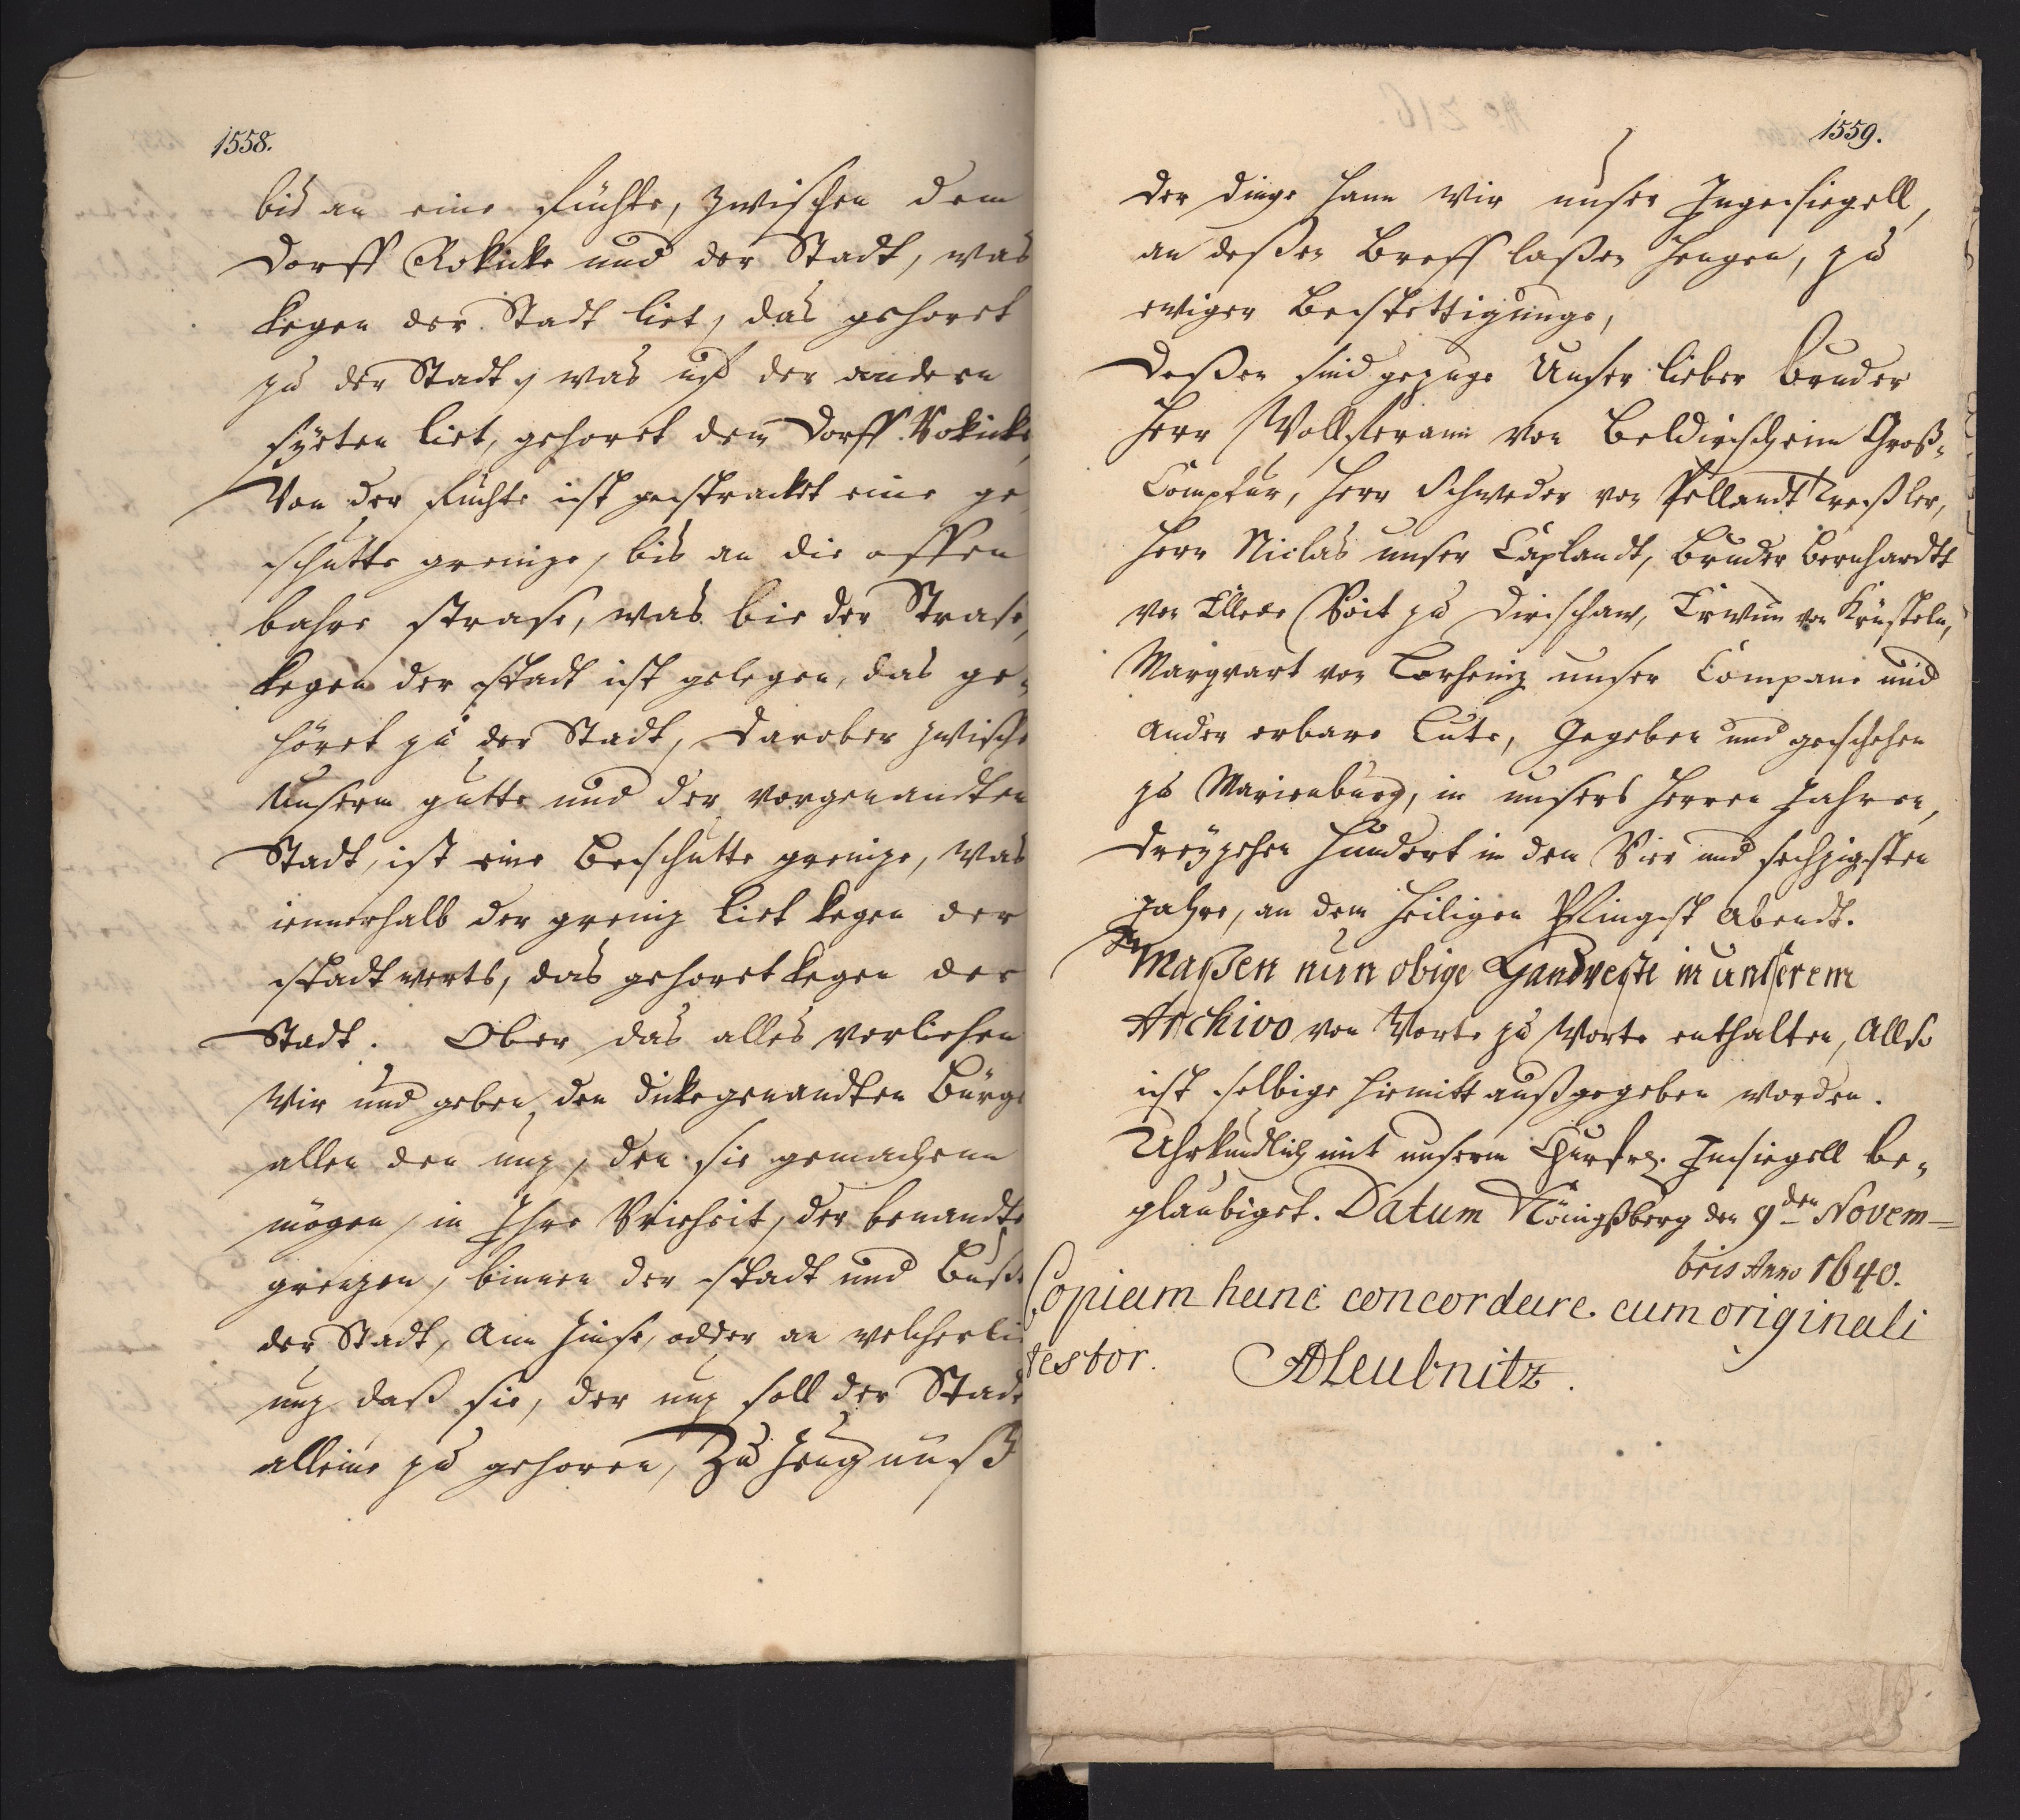 1558.
bis an eine fichte, zwischen dem
Dorff Rokicke und der Stadt, was
kegen der Stadt liet, das gehoret
zu der Stadt, was uf der andern
syeten liet, gehoret dem Dorff Rokicke,
Von der fichte ist gestracket eine ge
schutte greinze, bis an die offen
bahre strase, was bie der Strase,
kegen der stadt ist gelegen, das ge-
höret zu der Stadt, Darober zwische
Unserm gutte und der vorgenandten
Stadt, ist eine beschutte greinze, was
innerhalb der greniz liet kegen der
stadt werts, das gehoret kegen der
Stadt. Ober das alles verliehen
Wir und geben den dickegenandten Bürge
allen den nuz, den sie gemachenn
mögen, in Ihre Vrieheit, der benandte
grenzen, binnen der stadt und Buße
der Stadt, Ann Zinse, odder an welcherlei
nuz daß sie, der nuz soll der Stadt
alleine zu gehoren, Zu Zeugnuß
1559.
der dinge hann wir unser Ingesiegell,
an deßen Breff laßen hengen, zu
ewiger Bestettigunge,
Deßen sind gezuge Unser lieber Bruder
Herr Wollfferam von Beldirscheim Groß-
Compthur, Herr Schweder von Pellandt Treßler,
Herr Niclas unser Caplandt, Bruder Bernhardt
von Voit zu Dirschaw, Erwin von Krufteln,
Margwart von unser Compane und
ander erbare Lute, Gegeben und geschehen
zu Marienburg, in unsers Herren Jahren,
Dreyzehen Hundert in den Vier und sechzigsten
Jahre, an dem Heiligen Pfingst Abendt.
In Maßen nun obige Handveste in unserem
Archivo von Worte zu Worte enthalten, Allso
ist selbige hiemitt außgegeben worden.
Uhrkundlich mit unserm Churfrl. Insiegell be-
glaubiget. Datum Königßberg den 9den Novem=
bris Anno 1640.
Copiam hanc concordare cum originali
testor. ALeubnitz.